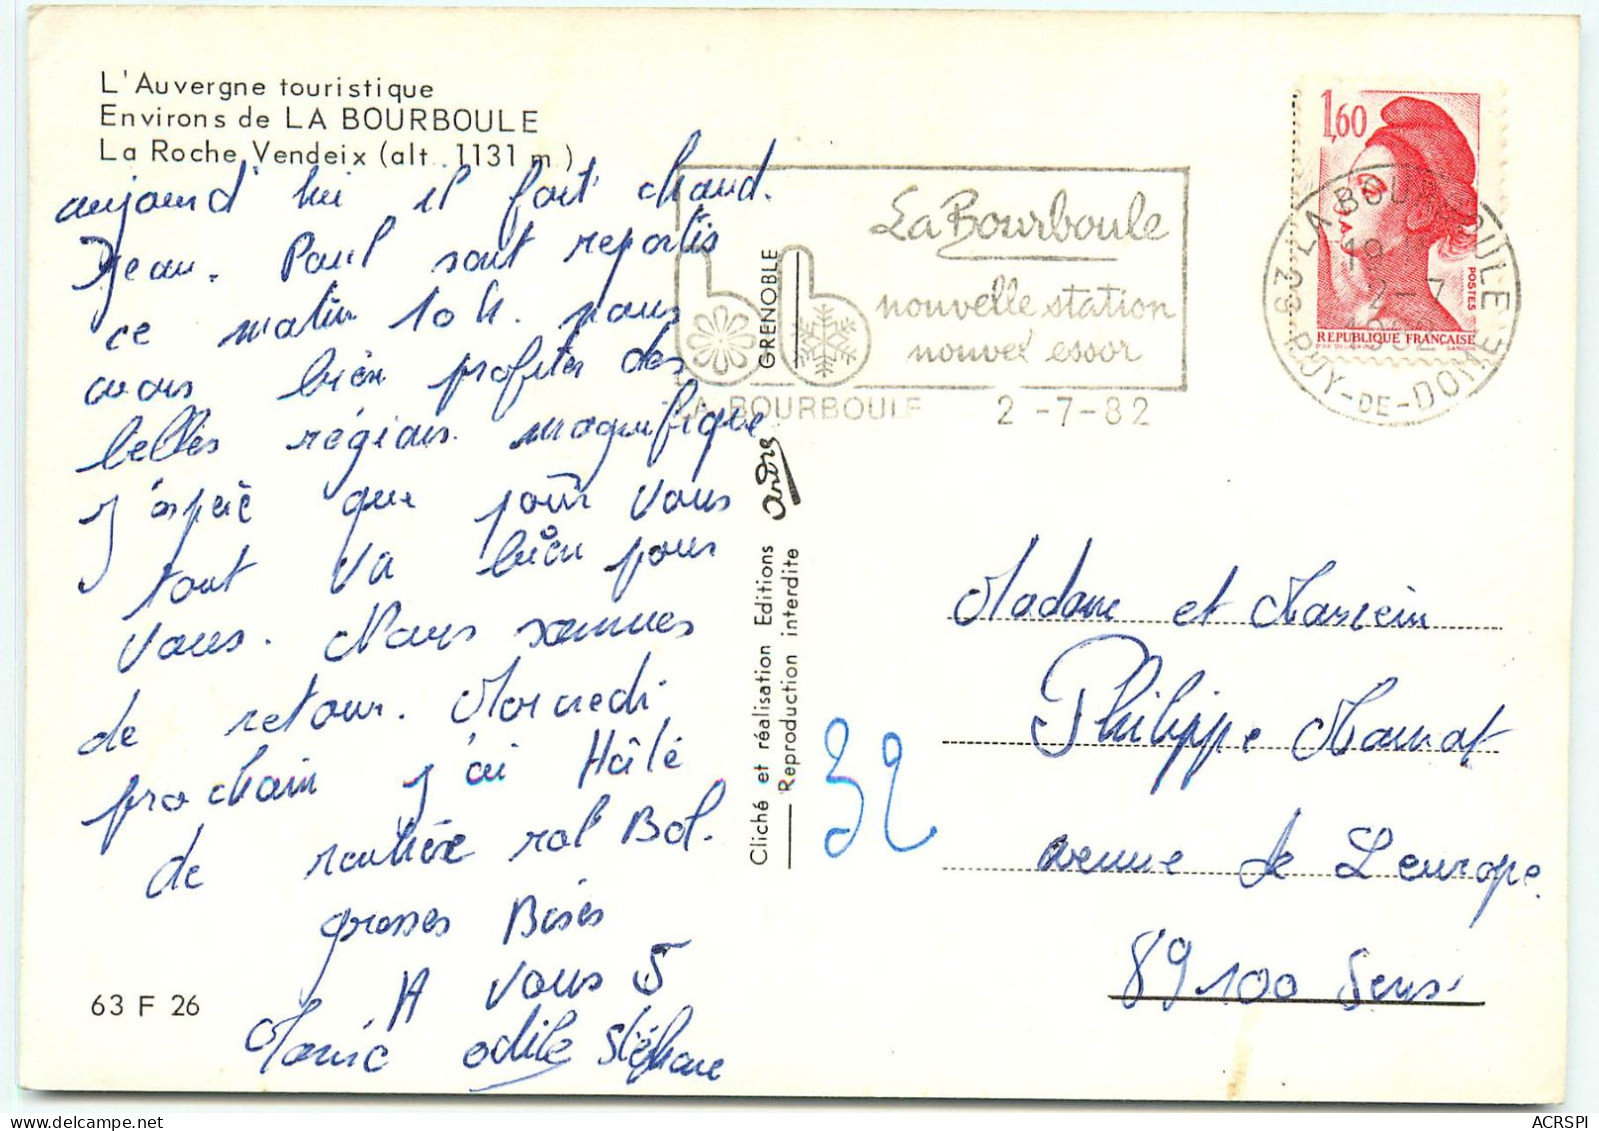 L'Auvergne touristique
Environs de LA BOURBOULE
La Roche Vendeix (alt. 1131 m.)
aujourd'hui il fait chaud.
Jean. Paul sont repartis
ce matin 10 h. nous
avons bien profiter des
belles régions. magnifique
J'éspéé que pour vous
tout va bien pour
vous. Nous sommes
de retour. Mercredi
prochain j'ai Hâté
de rentrére ral' Bol.
grosses Bisés
A vous 5
odile Stéphane
63 F 26
Cliché et réalisation Editions André GRENOBLE
Reproduction interdite
La Bourboule
nouvelle station
nouvel essor
LA BOURBOULE 2-7-82
1,60
POSTES
REPUBLIQUE FRANÇAISE
63 LA BOURBOULE
19 H
2-7
1982
PUY-DE-DOME
32
Madame et
Philippe
avenue de L'europe.
89100 Sens.
ACRSPI